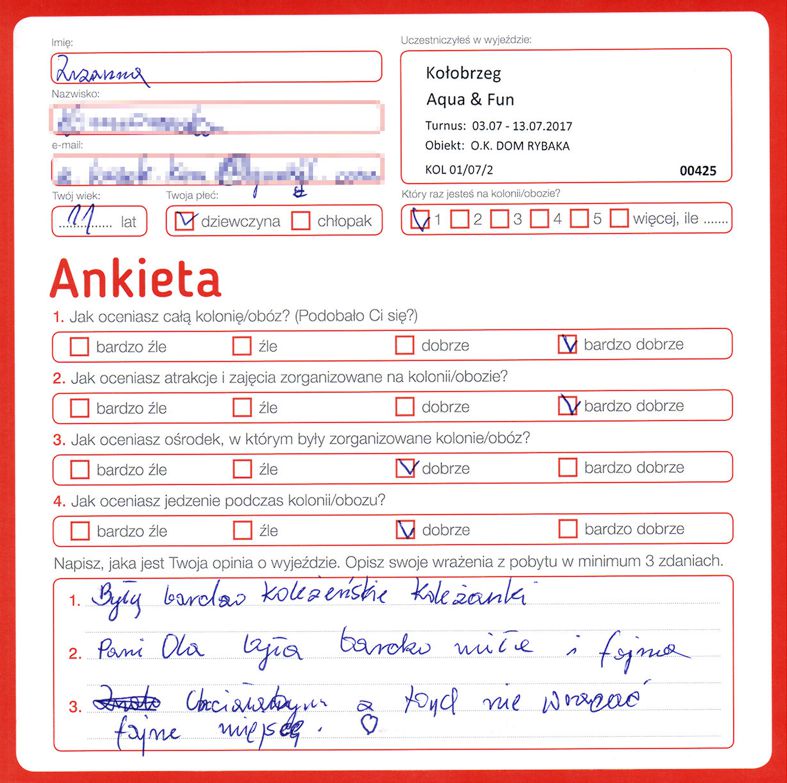 Imię:
Zuzanna
Nazwisko:
e-mail:
Twój wiek:
Twoja płeć:
11 lat
dziewczyna chłopak
Uczestniczyłeś w wyjeździe:
Kołobrzeg
Aqua & Fun
Turnus: 03.07 - 13.07.2017
Obiekt: O.K. DOM RYBAKA
KOL 01/07/2 00425
Który raz jesteś na kolonii/obozie?
1 2 3 4 5 więcej, ile .......
Ankieta
1. Jak oceniasz całą kolonię/obóz? (Podobało Ci się?)
bardzo źle źle dobrze bardzo dobrze
2. Jak oceniasz atrakcje i zajęcia zorganizowane na kolonii/obozie?
bardzo źle źle dobrze bardzo dobrze
3. Jak oceniasz ośrodek, w którym były zorganizowane kolonie/obóz?
bardzo źle źle dobrze bardzo dobrze
4. Jak oceniasz jedzenie podczas kolonii/obozu?
bardzo źle źle dobrze bardzo dobrze
Napisz, jaka jest Twoja opinia o wyjeździe. Opisz swoje wrażenia z pobytu w minimum 3 zdaniach.
1. Były bardzo koleżeńskie koleżanki
2. Pani Ola była bardzo miła i fajna
3. Chciałabym z tond nie wracać
fajne miejsce. ♡